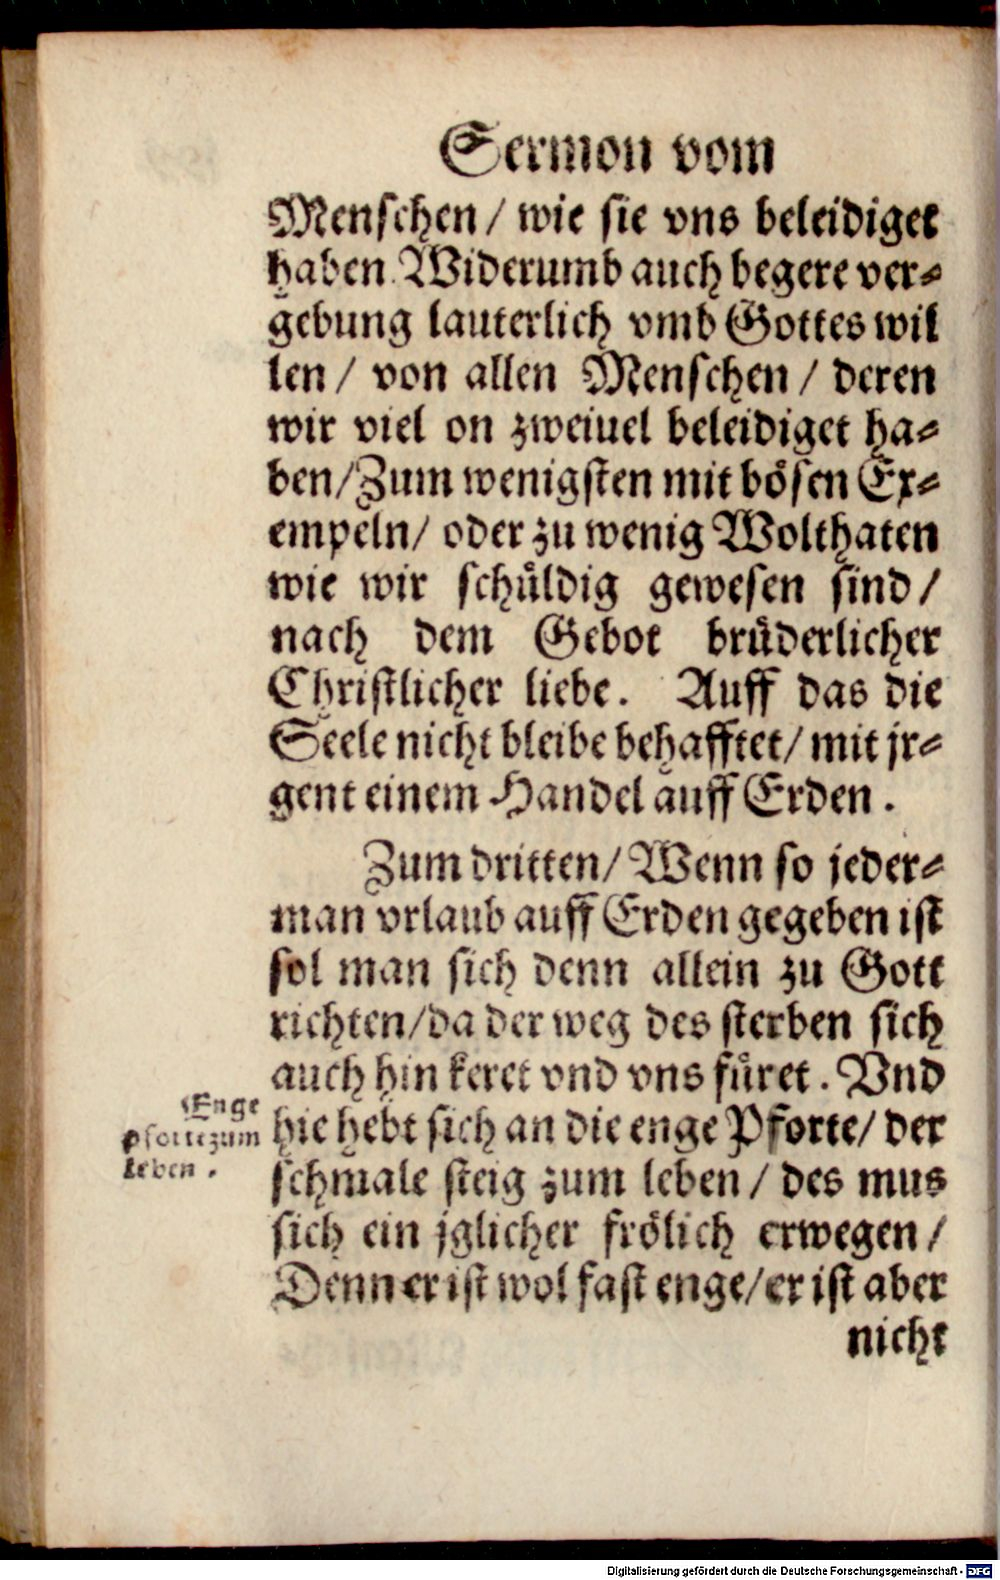 Sermon vom
Menschen / wie sie vns beleidiget
haben. Widerumb auch begere ver⸗
gebung lauterlich vmb Gottes wil
len / von allen Menschen / deren
wir viel on zweiuel beleidiget ha⸗
ben / Zum wenigsten mit bösen Ex⸗
empeln / oder zu wenig Wolthaten
wie wir schüldig gewesen sind /
nach dem Gebot brüderlicher
Christlicher liebe. Auff das die
Seele nicht bleibe behafftet / mit jr⸗
gent einem Handel auff Erden.
Zum dritten / Wenn so jeder⸗
man vrlaub auff Erden gegeben ist
sol man sich denn allein zu Gott
richten / da der weg des sterben sich
auch hin keret vnd vns füret. Vnd
hie hebt sich an die enge Pforte / der
schmale steig zum leben / des mus
sich ein jglicher frölich erwegen /
Denn er ist wol fast enge / er ist aber
nicht
Enge
Pforte zum
leben.
Digitalisierung gefördert durch die Deutsche Forschungsgemeinschaft - DFG